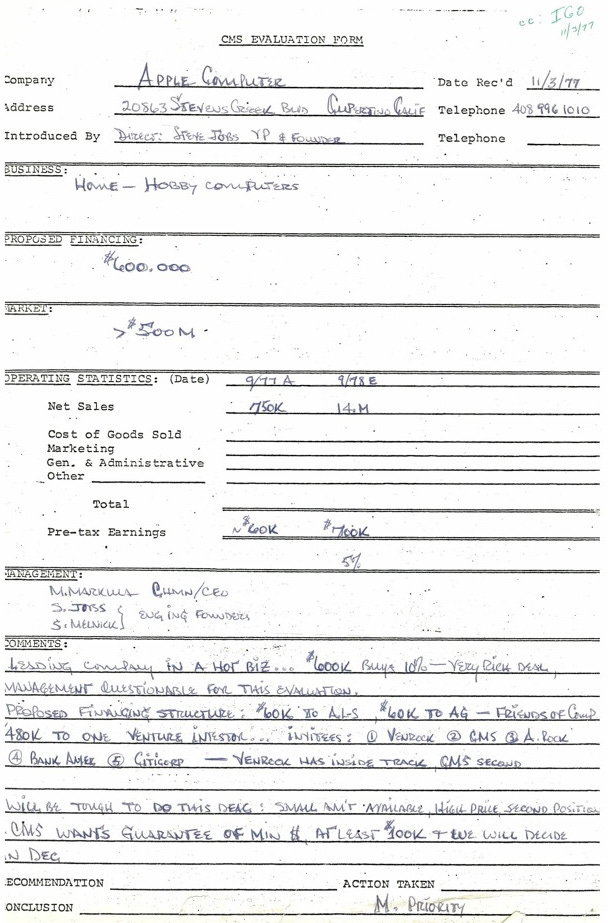 cc: IGO
11/3/77
CMS EVALUATION FORM
Company APPLE COMPUTER Date Rec'd 11/3/77
Address 20863 STEVENS CREEK BLVD CUPERTINO CALIF Telephone 408 996 1010
Introduced By DIRECT: STEVE JOBS VP & FOUNDER Telephone
BUSINESS:
HOME – HOBBY COMPUTERS
PROPOSED FINANCING:
$600.000
MARKET:
> $500M.
OPERATING STATISTICS: (Date) 9/77 A 9/78 E
Net Sales 750K 14.M
Cost of Goods Sold
Marketing
Gen. & Administrative
Other
Total
Pre-tax Earnings ~$60K $700K
5%
MANAGEMENT:
M. MARKULA CHMN/CEO
S. JOBS } ENG'ING FOUNDERS
S. MELNICK
COMMENTS:
LEADING COMPANY IN A HOT BIZ... $600K BUYS 10% – VERY RICH DEAL,
MANAGEMENT QUESTIONABLE FOR THIS EVALUATION.
PROPOSED FINANCING STRUCTURE: $60K TO ALS, $60K TO AG – FRIENDS OF COMP
480K TO ONE VENTURE INVESTOR... INVITEES: ① VENROCK ② CMS ③ A. ROCK
④ BANK AMER ⑤ CITICORP – VENROCK HAS INSIDE TRACK, CMS SECOND
WILL BE TOUGH TO DO THIS DEAL: SMALL AM'T AVAILABLE, HIGH PRICE, SECOND POSITION
CMS WANTS GUARANTEE OF MIN $, AT LEAST $100K & WE WILL DECIDE
IN DEC
RECOMMENDATION ACTION TAKEN
CONCLUSION M. PRIORITY